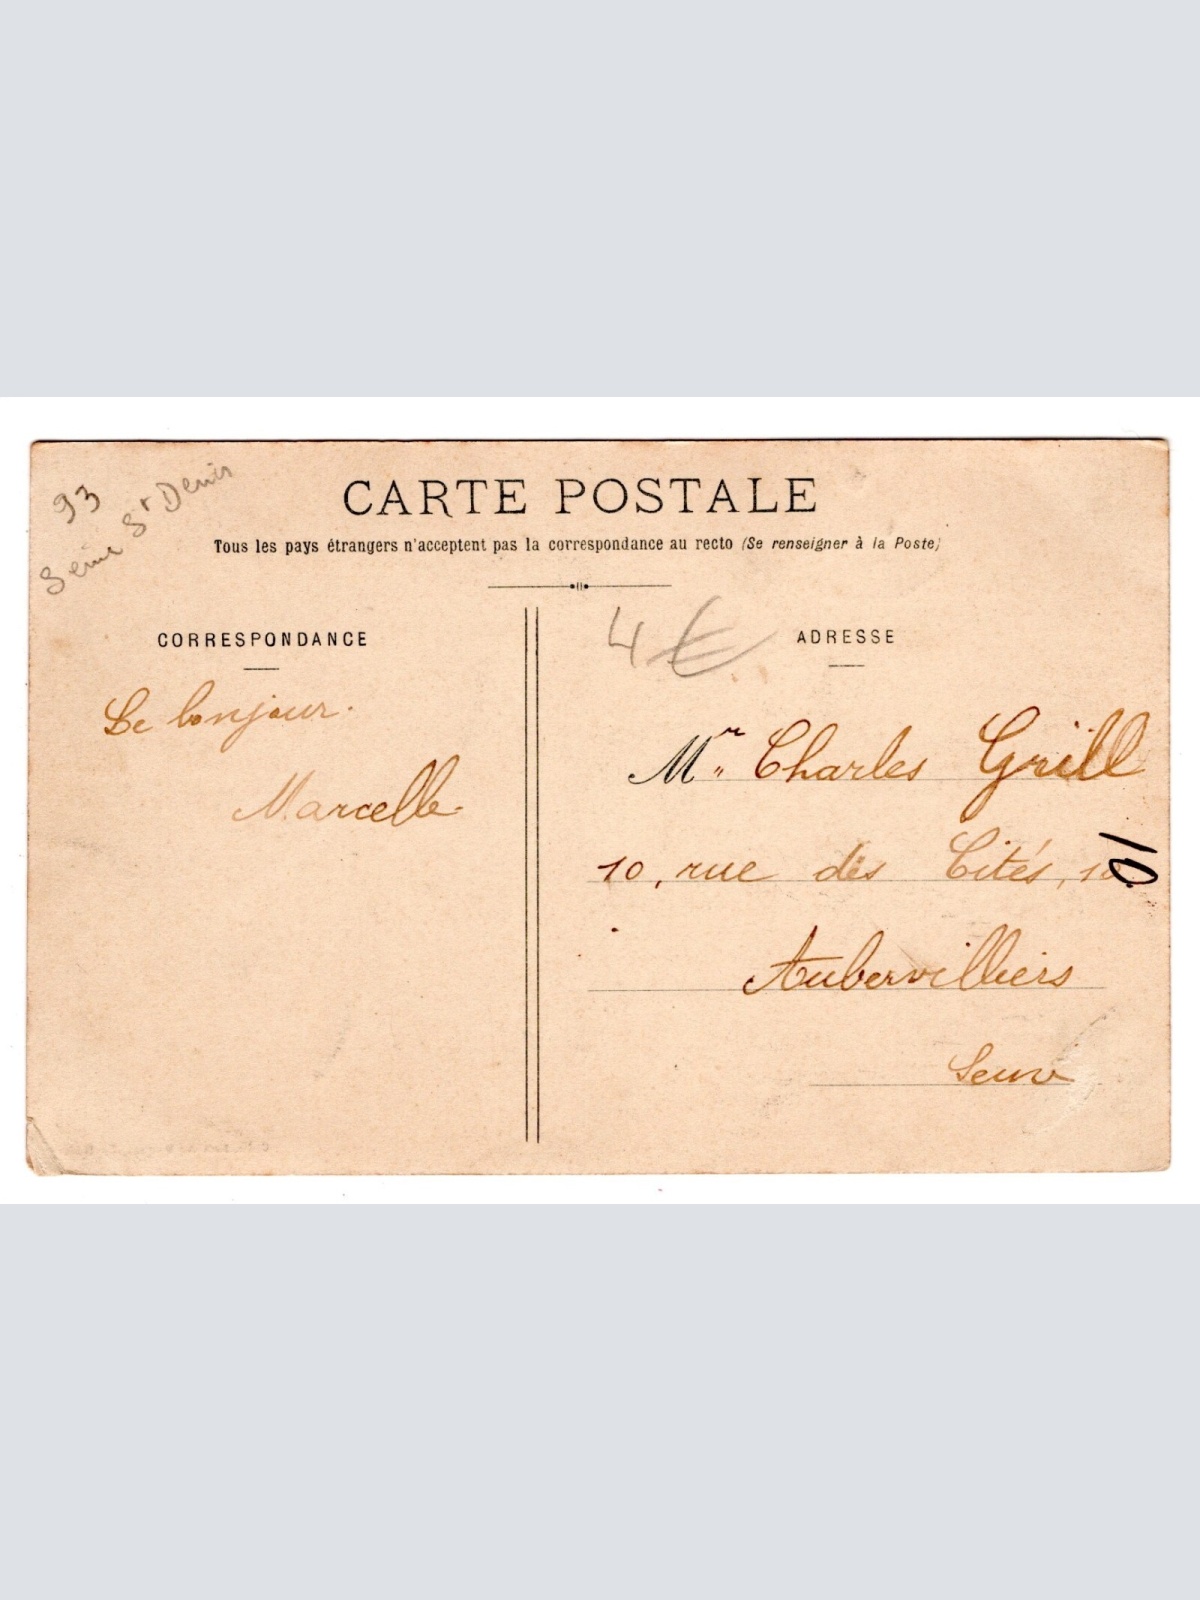 93
Seine St Denis
CARTE POSTALE
Tous les pays étrangers n'acceptent pas la correspondance au recto (Se renseigner à la Poste)
4€
CORRESPONDANCE
Le bonjour.
Marcelle.
ADRESSE
Mr Charles Grill
10, rue des Cités, 10
10
Aubervilliers
Seine